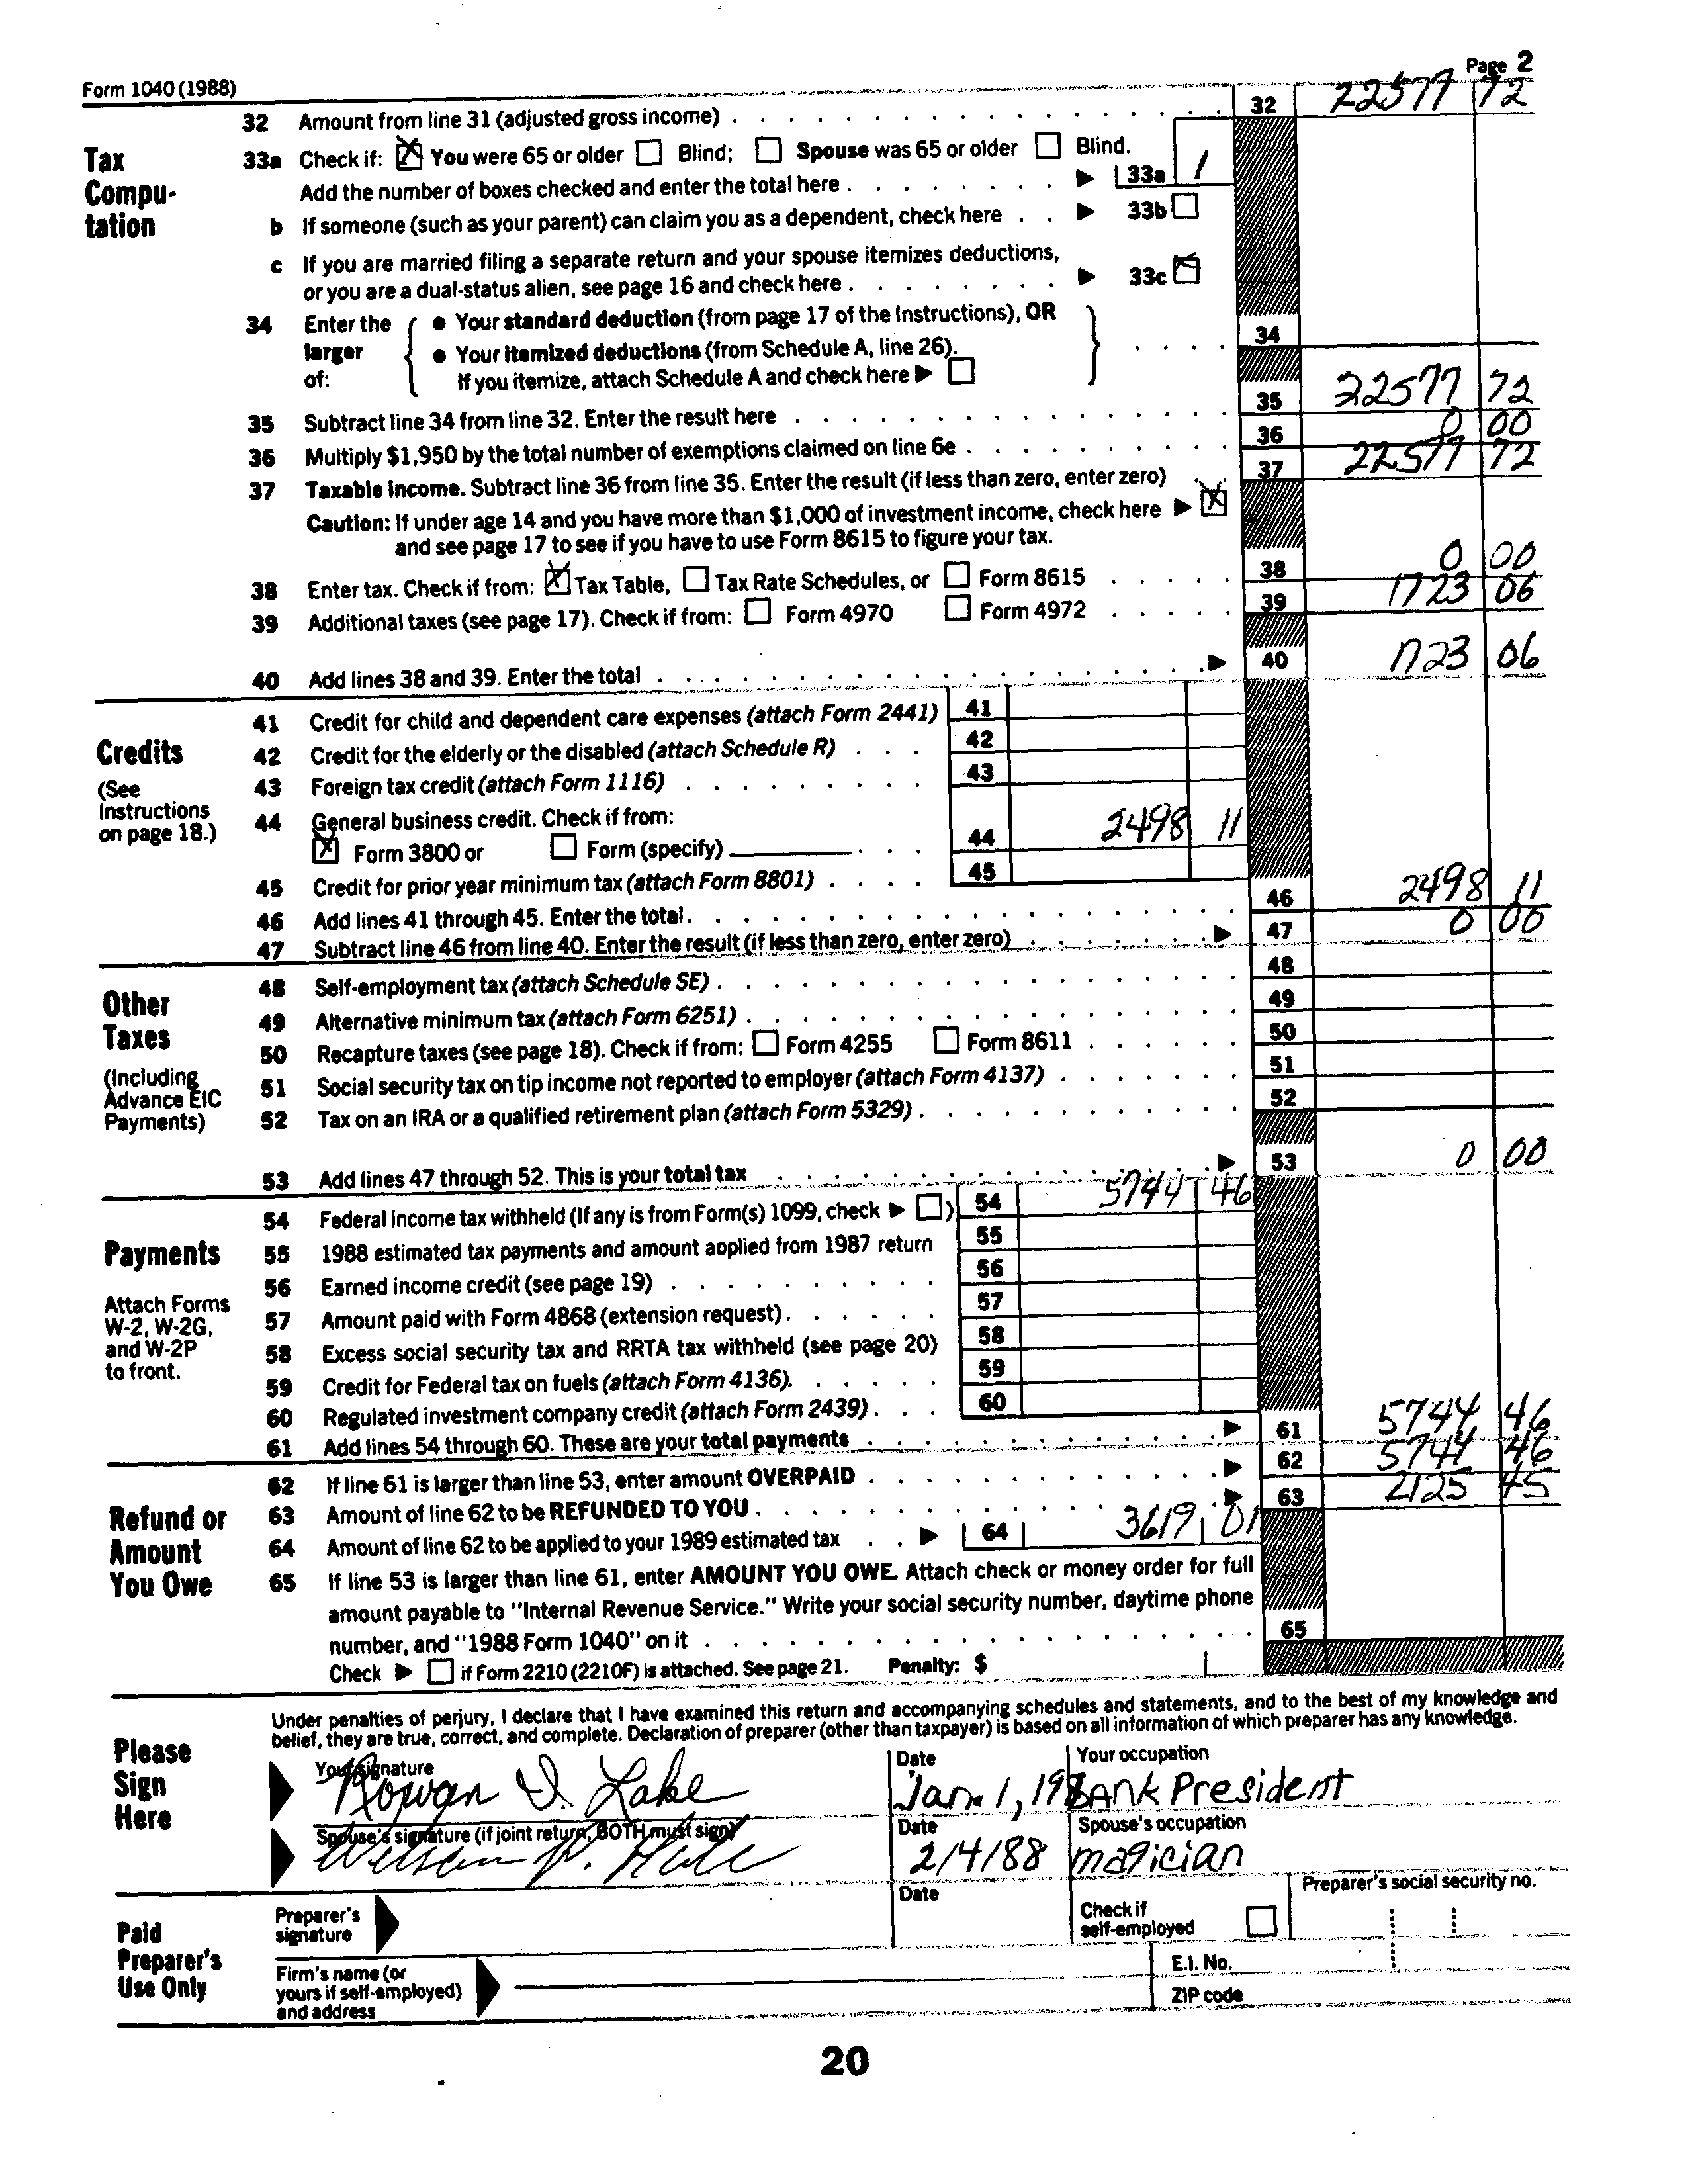 Form 1040 (1988) Page 2
32 Amount from line 31 (adjusted gross income) 32 22577 72
Tax Compu-tation
33a Check if: [X] You were 65 or older [ ] Blind; [ ] Spouse was 65 or older [ ] Blind.
Add the number of boxes checked and enter the total here ▶ 33a 1
b If someone (such as your parent) can claim you as a dependent, check here ▶ 33b [ ]
c If you are married filing a separate return and your spouse itemizes deductions,
or you are a dual-status alien, see page 16 and check here ▶ 33c [X]
34 Enter the larger of: { ● Your standard deduction (from page 17 of the Instructions), OR
● Your itemized deductions (from Schedule A, line 26).
If you itemize, attach Schedule A and check here ▶ [ ] } 34
35 Subtract line 34 from line 32. Enter the result here 35 22577 72
36 Multiply $1,950 by the total number of exemptions claimed on line 6e 36 0 00
37 Taxable income. Subtract line 36 from line 35. Enter the result (if less than zero, enter zero) 37 22577 72
Caution: If under age 14 and you have more than $1,000 of investment income, check here ▶ [X]
and see page 17 to see if you have to use Form 8615 to figure your tax.
38 Enter tax. Check if from: [X] Tax Table, [ ] Tax Rate Schedules, or [ ] Form 8615 38 0 00
39 Additional taxes (see page 17). Check if from: [ ] Form 4970 [ ] Form 4972 39 1723 06
40 Add lines 38 and 39. Enter the total ▶ 40 1723 06
Credits
(See Instructions on page 18.)
41 Credit for child and dependent care expenses (attach Form 2441) 41
42 Credit for the elderly or the disabled (attach Schedule R) 42
43 Foreign tax credit (attach Form 1116) 43
44 General business credit. Check if from:
[X] Form 3800 or [ ] Form (specify) 44 2498 11
45 Credit for prior year minimum tax (attach Form 8801) 45
46 Add lines 41 through 45. Enter the total 46 2498 11
47 Subtract line 46 from line 40. Enter the result (if less than zero, enter zero) ▶ 47 0 00
Other Taxes
(Including Advance EIC Payments)
48 Self-employment tax (attach Schedule SE) 48
49 Alternative minimum tax (attach Form 6251) 49
50 Recapture taxes (see page 18). Check if from: [ ] Form 4255 [ ] Form 8611 50
51 Social security tax on tip income not reported to employer (attach Form 4137) 51
52 Tax on an IRA or a qualified retirement plan (attach Form 5329) 52
53 Add lines 47 through 52. This is your total tax ▶ 53 0 00
Payments
Attach Forms W-2, W-2G, and W-2P to front.
54 Federal income tax withheld (If any is from Form(s) 1099, check ▶ [ ]) 54 5744 46
55 1988 estimated tax payments and amount applied from 1987 return 55
56 Earned income credit (see page 19) 56
57 Amount paid with Form 4868 (extension request) 57
58 Excess social security tax and RRTA tax withheld (see page 20) 58
59 Credit for Federal tax on fuels (attach Form 4136) 59
60 Regulated investment company credit (attach Form 2439) 60
61 Add lines 54 through 60. These are your total payments ▶ 61 5744 46
Refund or Amount You Owe
62 If line 61 is larger than line 53, enter amount OVERPAID ▶ 62 5744 46
63 Amount of line 62 to be REFUNDED TO YOU ▶ 63 2125 45
64 Amount of line 62 to be applied to your 1989 estimated tax ▶ 64 3619 01
65 If line 53 is larger than line 61, enter AMOUNT YOU OWE. Attach check or money order for full
amount payable to "Internal Revenue Service." Write your social security number, daytime phone
number, and "1988 Form 1040" on it 65
Check ▶ [ ] if Form 2210 (2210F) is attached. See page 21. Penalty: $
Please Sign Here
Under penalties of perjury, I declare that I have examined this return and accompanying schedules and statements, and to the best of my knowledge and
belief, they are true, correct, and complete. Declaration of preparer (other than taxpayer) is based on all information of which preparer has any knowledge.
Your signature Date Your occupation
Rowan D. Lake Jan. 1, BANK President
Spouse's signature (if joint return, BOTH must sign) Date Spouse's occupation
2/4/88 magician
Paid Preparer's Use Only
Preparer's signature Date Check if self-employed [ ] Preparer's social security no.
Firm's name (or yours if self-employed) and address E.I. No.
ZIP code
20